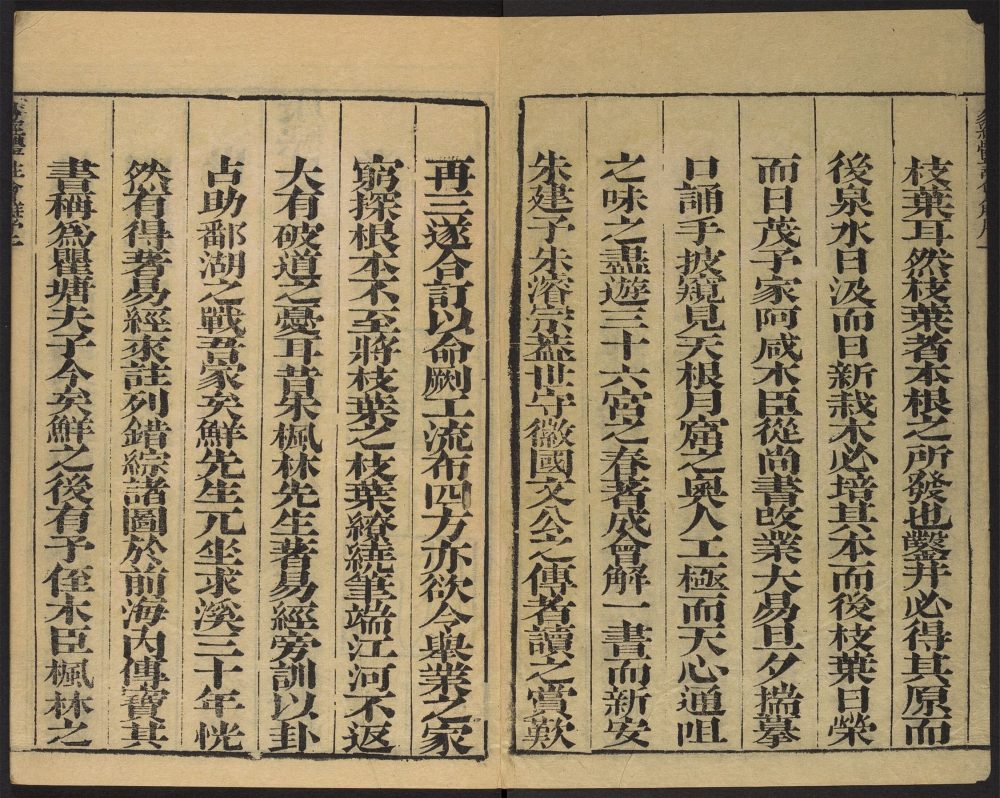 枝葉耳然枝葉者本根之所發也鑿井必得其原而
後泉水日汲而日新栽木必培其本而後枝葉日榮
而日茂予家阿咸木臣從尚書改業大易旦夕揣摹
口誦手披窺見天根月窟之奥人工極而天心通咀
之味之盡遊三十六宮之春著成會解一書而新安
朱建子朱濬宗葢世守徽國文公之傳者讀之賞歎
再三遂合訂以命劂工流布四方亦欲令舉業之家
窮探根本不至將枝葉之枝葉繚繞筆端江河不返
大有破道之憂耳昔朱楓林先生著易經旁訓以卦
占助鄱湖之戰吾家矣鮮先生元坐求溪三十年恍
然有得著易經來註列錯綜諸圖於前海内傳寶其
書稱爲瞿塘夫子今矣鮮之後有予侄木臣楓林之